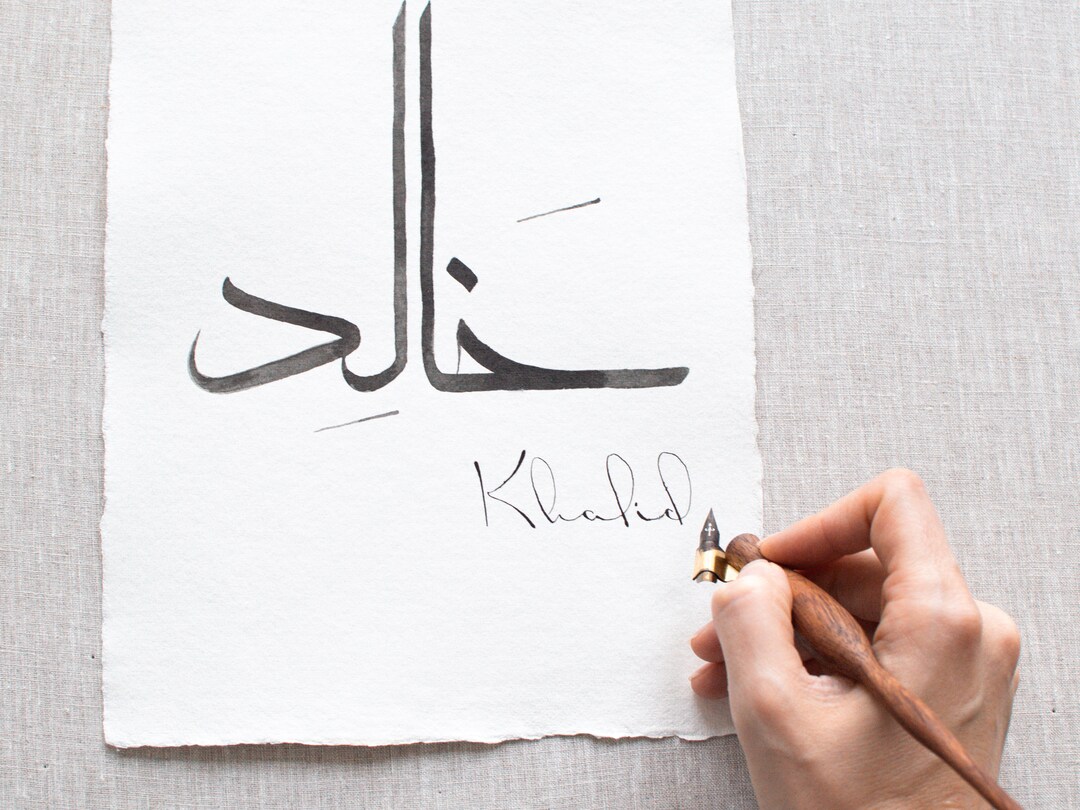 خَالِد
Khalid